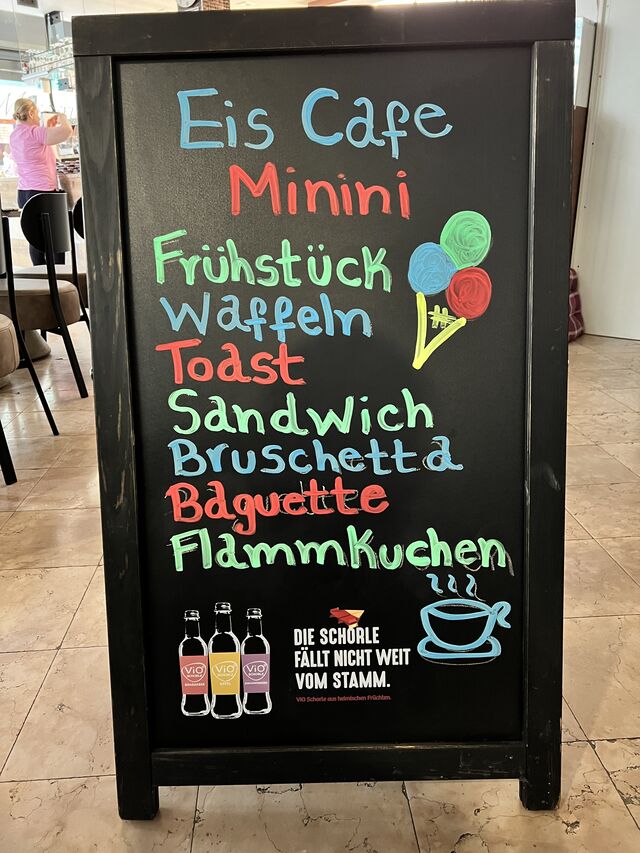 Eis Cafe
Minini
Frühstück
Waffeln
Toast
Sandwich
Bruschetta
Baguette
Flammkuchen
ViO
SCHORLE
ViO
SCHORLE
ViO
SCHORLE
DIE SCHORLE
FÄLLT NICHT WEIT
VOM STAMM.
ViO Schorle aus heimischen Früchten.